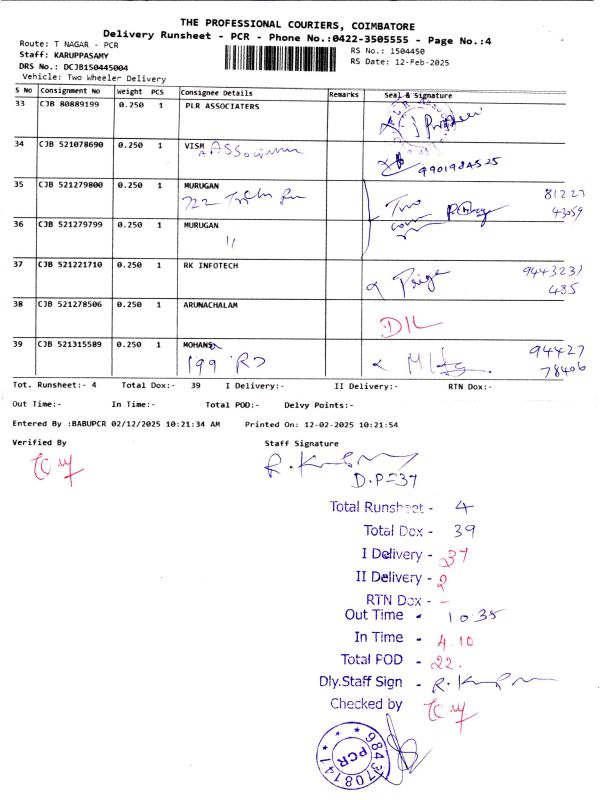 THE PROFESSIONAL COURIERS, COIMBATORE
Delivery Runsheet - PCR - Phone No.:0422-3505555 - Page No.:4
Route: T NAGAR - PCR
RS No.: 1504450
Staff: KARUPPASAMY
RS Date: 12-Feb-2025
DRS No.: DCJB150445004
Vehicle: Two Wheeler Delivery
S No Consignment No Weight PCS Consignee Details Remarks Seal & Signature
33 CJB 80889199 0.250 1 PLR ASSOCIATERS
34 CJB 521078690 0.250 1 VISM
9901984525
35 CJB 521279800 0.250 1 MURUGAN 81227
722 43059
36 CJB 521279799 0.250 1 MURUGAN
"
37 CJB 521221710 0.250 1 RK INFOTECH 9443231
485
38 CJB 521278506 0.250 1 ARUNACHALAM
D/L
39 CJB 521315589 0.250 1 MOHANS 94427
199 RD 78406
Tot. Runsheet:- 4 Total Dox:- 39 I Delivery:- II Delivery:- RTN Dox:-
Out Time:- In Time:- Total POD:- Delvy Points:-
Entered By :BABUPCR 02/12/2025 10:21:34 AM Printed On: 12-02-2025 10:21:54
Verified By Staff Signature
D.P=37
Total Runsheet - 4
Total Dox - 39
I Delivery - 37
II Delivery - 2
RTN Dox - -
Out Time - 10 35
In Time - 4.10
Total POD - 22.
Dly.Staff Sign -
Checked by
PCR
9843708141